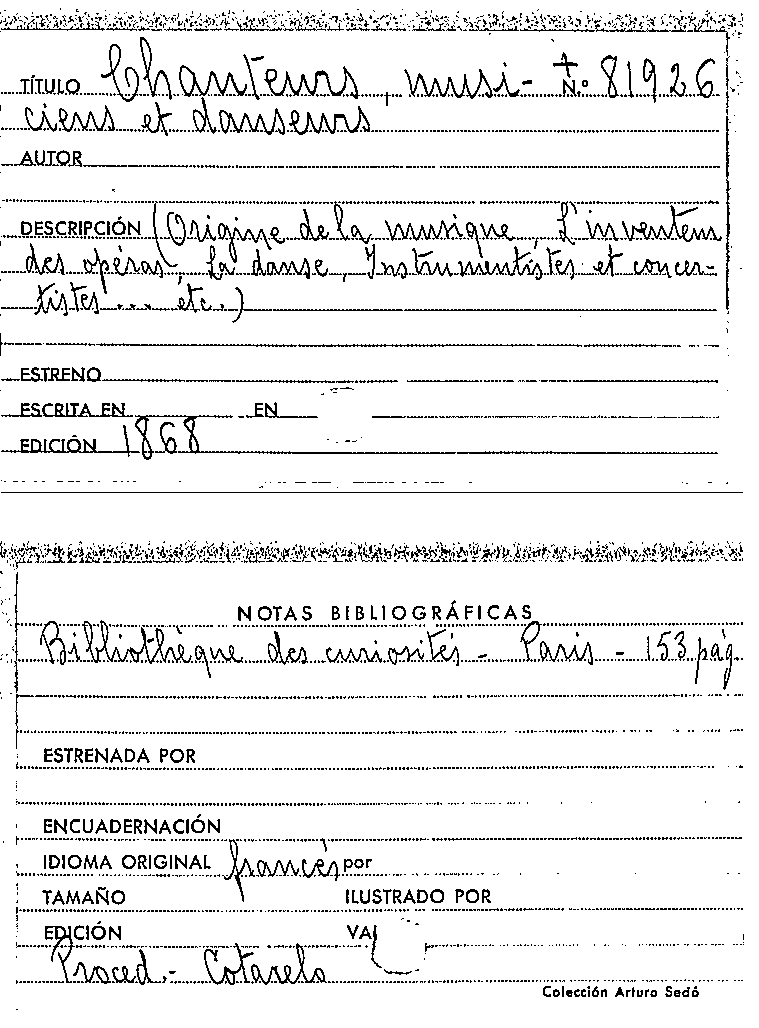 TÍTULO Chanteurs, musi- † N.º 81926
ciens et danseurs
AUTOR
DESCRIPCIÓN (Origine de la musique, L'inventeur
des opéras, La danse, Instrumentistes et concer-
tistes... etc.)
ESTRENO
ESCRITA EN EN
EDICIÓN 1868
NOTAS BIBLIOGRÁFICAS
Bibliothèque des curiosités - Paris - 153 pág
ESTRENADA POR
ENCUADERNACIÓN
IDIOMA ORIGINAL francés por
TAMAÑO ILUSTRADO POR
EDICIÓN VA
Proced.- Cotarelo
Colección Arturo Sedó